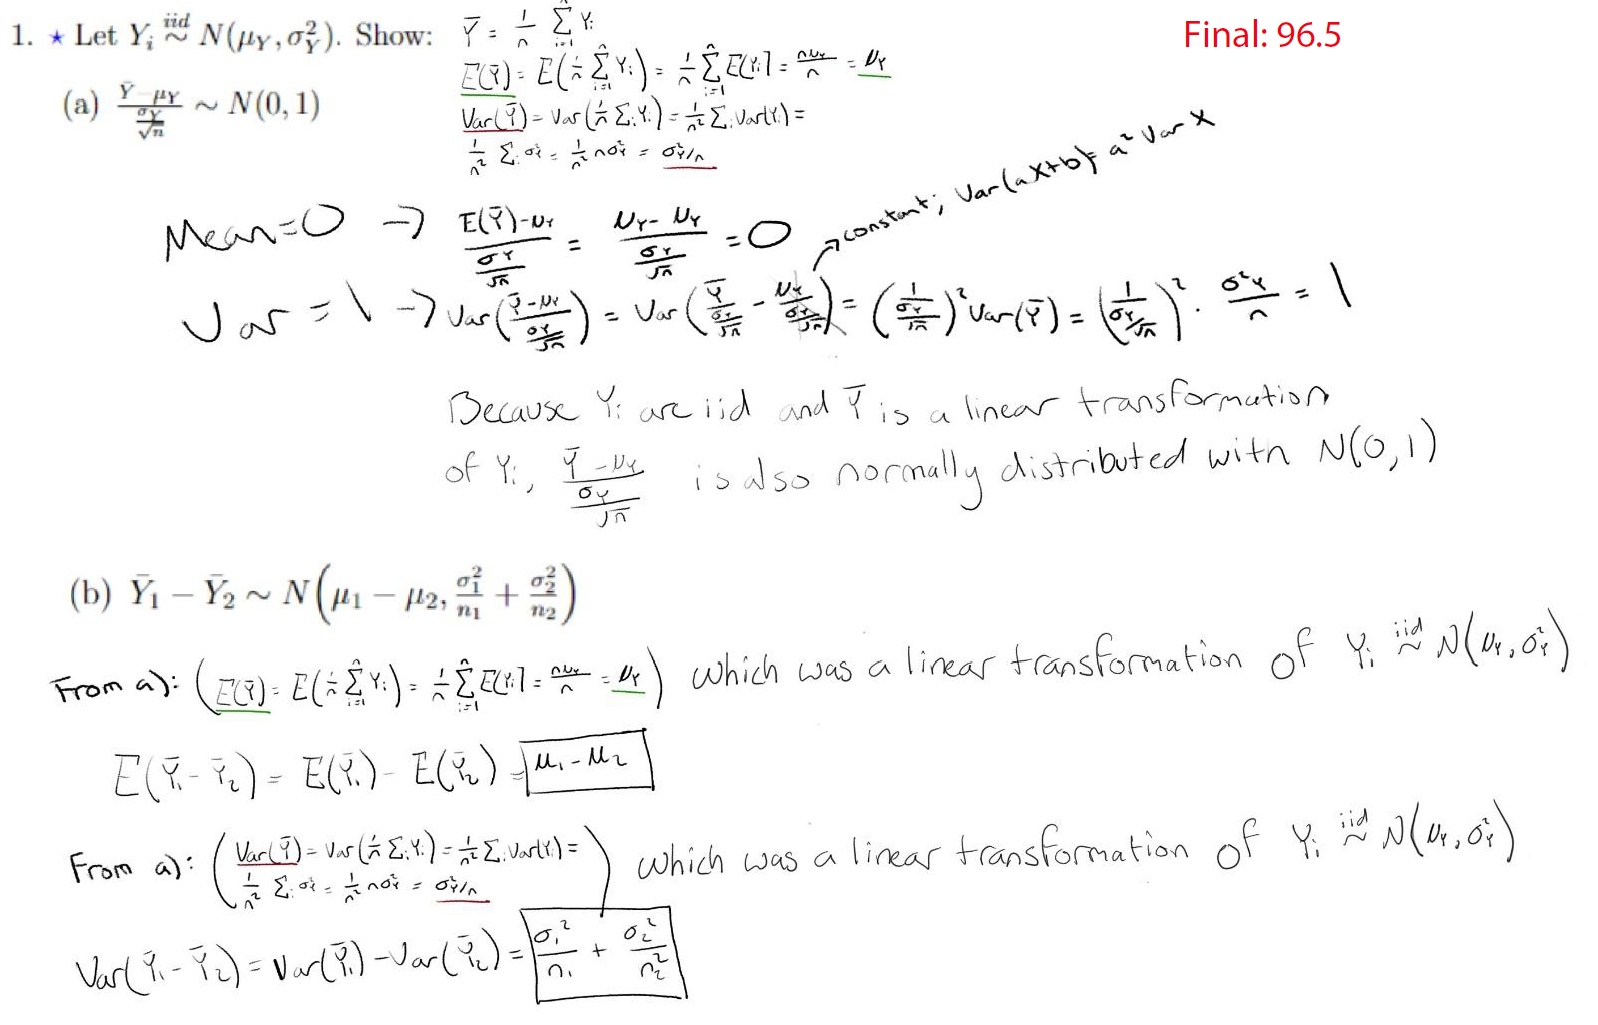 1. ★ Let Y_i iid~ N(μ_Y, σ²_Y). Show:
Ȳ = 1/n Σ_{i=1}^n Y_i
Final: 96.5
E(Ȳ) = E(1/n Σ_{i=1}^n Y_i) = 1/n Σ_{i=1}^n E[Y_i] = nμ_Y/n = μ_Y
(a) (Ȳ - μ_Y)/(σ_Y/√n) ~ N(0, 1)
Var(Ȳ) = Var(1/n Σ_i Y_i) = 1/n² Σ_i Var(Y_i) =
1/n² Σ_i σ²_Y = 1/n² nσ²_Y = σ²_Y/n
Mean=0 → (E(Ȳ)-μ_Y)/(σ_Y/√n) = (μ_Y - μ_Y)/(σ_Y/√n) = 0
→ constant; Var(aX+b) = a² Var X
Var = 1 → Var((Ȳ-μ_Y)/(σ_Y/√n)) = Var(Ȳ/(σ_Y/√n) - μ_Y/(σ_Y/√n)) = (1/(σ_Y/√n))² Var(Ȳ) = (1/(σ_Y/√n))² · σ²_Y/n = 1
Because Y_i are iid and Ȳ is a linear transformation
of Y_i, (Ȳ-μ_Y)/(σ_Y/√n) is also normally distributed with N(0,1)
(b) Ȳ₁ − Ȳ₂ ~ N(μ₁ − μ₂, σ₁²/n₁ + σ₂²/n₂)
From a): (E(Ȳ) = E(1/n Σ_{i=1}^n Y_i) = 1/n Σ_{i=1}^n E[Y_i] = nμ_Y/n = μ_Y) which was a linear transformation of Y_i iid~ N(μ_Y, σ²_Y)
E(Ȳ₁ - Ȳ₂) = E(Ȳ₁) - E(Ȳ₂) = μ₁ - μ₂
From a): (Var(Ȳ) = Var(1/n Σ_i Y_i) = 1/n² Σ_i Var(Y_i) =
1/n² Σ_i σ²_Y = 1/n² nσ²_Y = σ²_Y/n) which was a linear transformation of Y_i iid~ N(μ_Y, σ²_Y)
Var(Ȳ₁ - Ȳ₂) = Var(Ȳ₁) - Var(Ȳ₂) = σ₁²/n₁ + σ₂²/n₂²